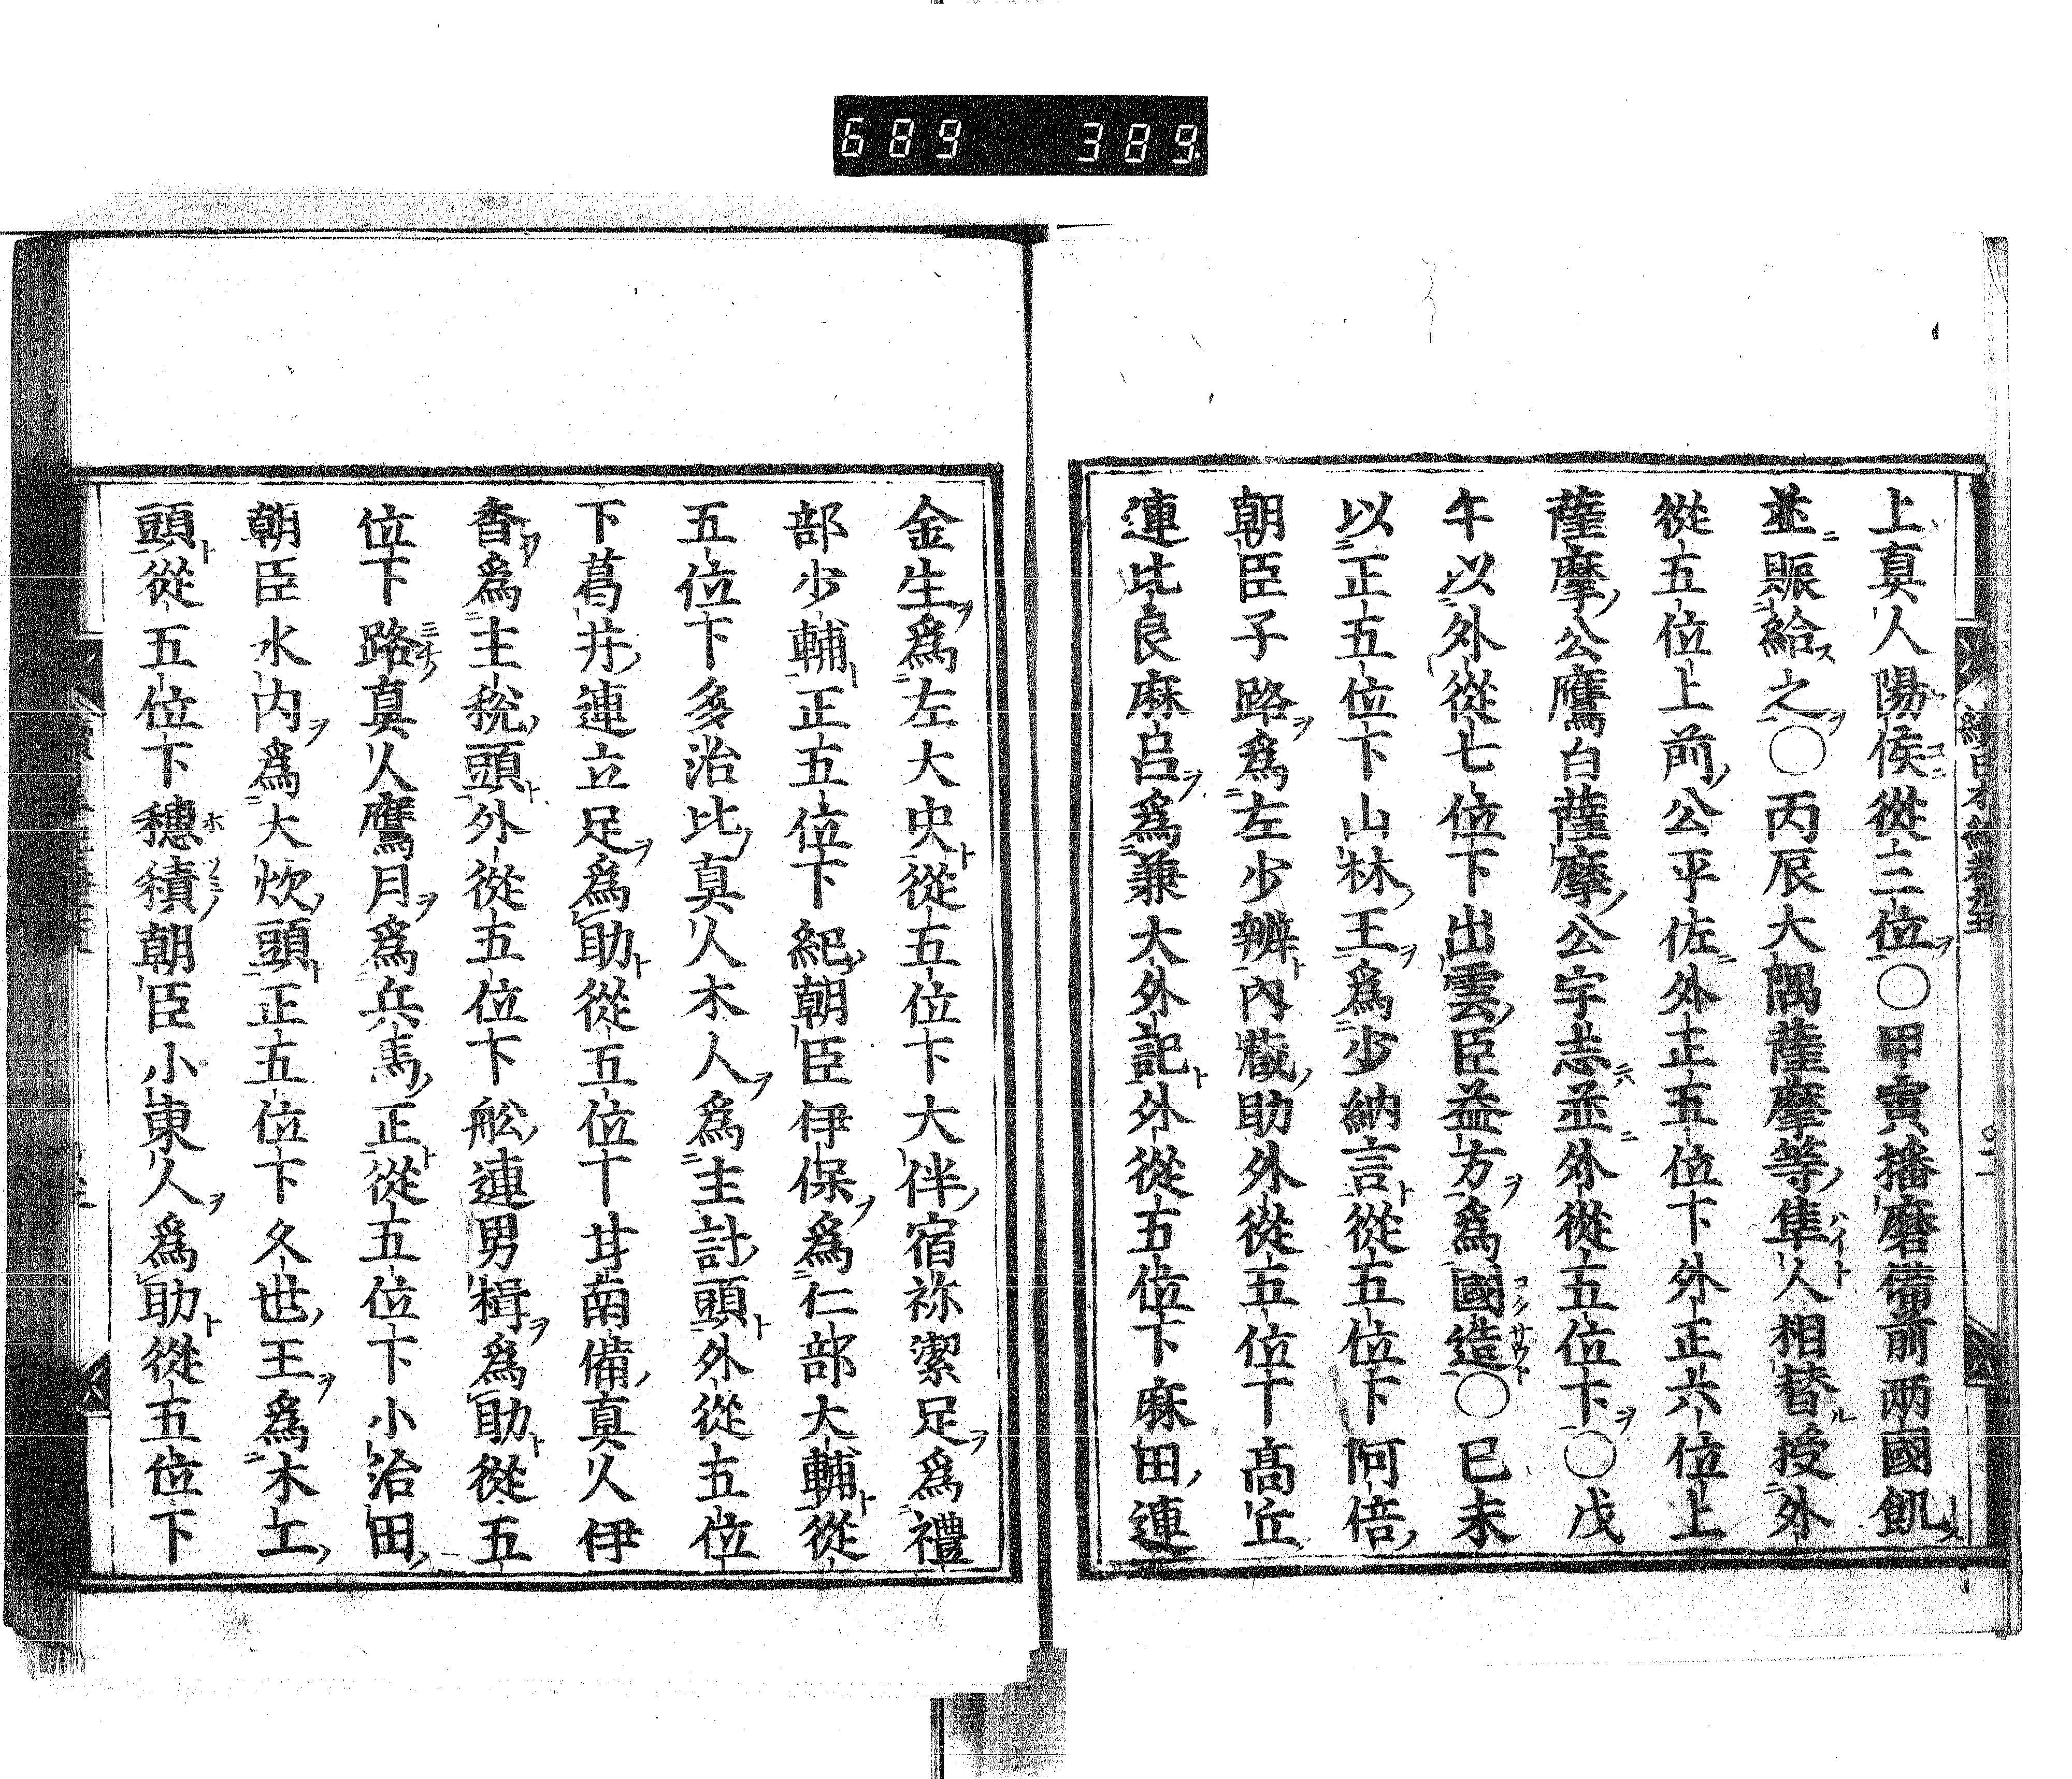 689 389
上真人陽侯從三位〇甲寅播磨備前两國飢
並賑給之〇丙辰大隅薩摩等隼人相替授外
從五位上前公乎佐外正五位下外正六位上
薩摩公鷹白薩摩公宇志並外從五位下〇戊
午以外從七位下出雲臣益方爲國造〇已未
以正五位下山林王爲少納言從五位下阿倍
朝臣子路爲左少辨內藏助外從五位下高丘
連比良麻呂爲兼大外記外從五位下麻田連
金生爲左大史從五位下大伴宿祢潔足爲禮
部少輔正五位下紀朝臣伊保爲仁部大輔從
五位下多治比真人木人爲主計頭外從五位
下葛井連立足爲助從五位下甘南備真人伊
香爲主稅頭外從五位下舩連男楫爲助從五
位下路真人鷹月爲兵馬正從五位下小治田
朝臣水内爲大炊頭正五位下久世王爲木工
頭從五位下穗積朝臣小東人爲助從五位下